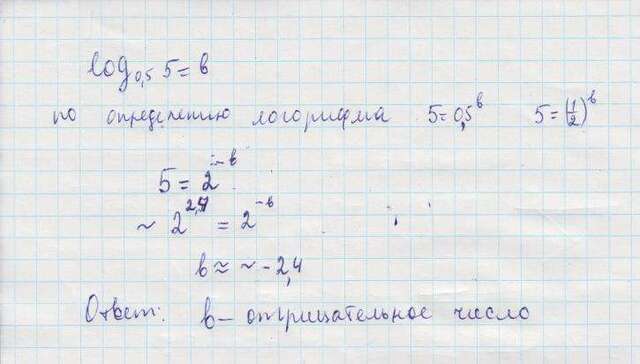 log₀,₅ 5 = b
по определению логорифма 5 = 0,5ᵇ 5 = (1/2)ᵇ
5 = 2⁻ᵇ
~ 2²,⁴ = 2⁻ᵇ
b ≈ ~ -2,4
Ответ: b – отрицательное число